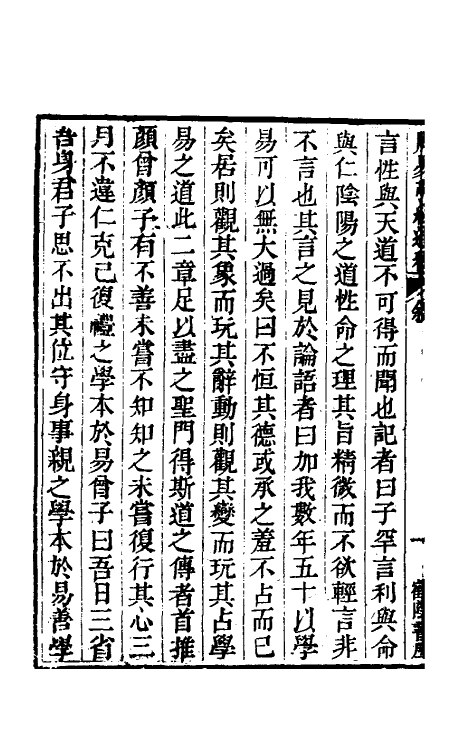 言性與天道不可得而聞也記者曰子罕言利與命
與仁陰陽之道性命之理其旨精微而不欲輕言非
不言也其言之見於論語者曰加我數年五十以學
易可以無大過矣曰不恒其德或承之羞不占而已
矣居則觀其象而玩其辭動則觀其變而玩其占學
易之道此二章足以盡之聖門得斯道之傳者首推
顏曾顏子有不善未嘗不知知之未嘗復行其心三
月不違仁克己復禮之學本於易曾子曰吾日三省
吾身君子思不出其位守身事親之學本於易善學